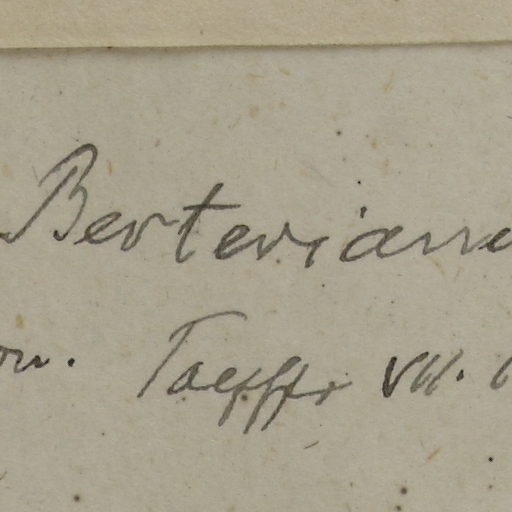 Berteriana
on. Taeffr VII.